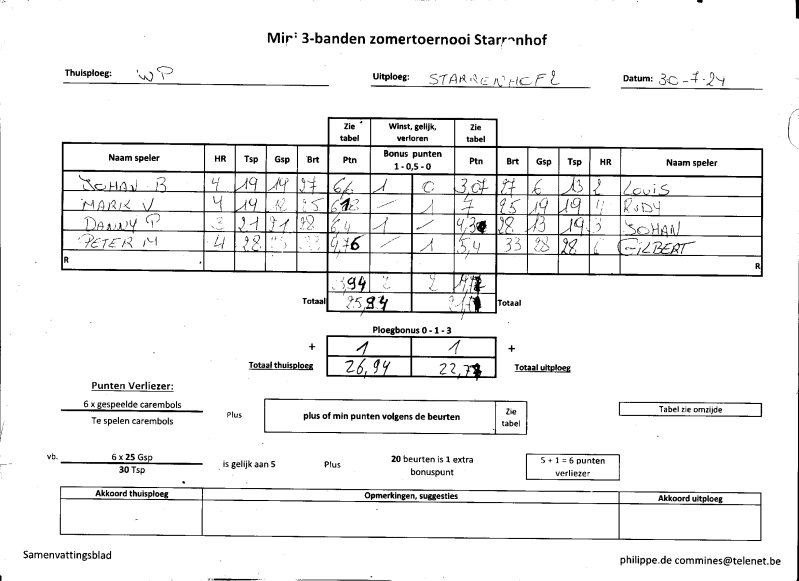 Mini 3-banden zomertoernooi Starrenhof
Thuisploeg: WP Uitploeg: STARRENHOF 2 Datum: 30-7-24
Zie tabel Winst, gelijk, verloren Zie tabel
Naam speler HR Tsp Gsp Brt Ptn Bonus punten 1 - 0,5 - 0 Ptn Brt Gsp Tsp HR Naam speler
JOHAN B 4 19 19 27 1 0 3,07 27 6 13 2 LOUIS
MARK V 4 19 12 25 — 1 7 25 19 19 4 RUDY
DANNY P 3 21 21 28 6,4 1 — 28 13 19 3 JOHAN
PETER M 4 28 33 4,76 — 1 5,4 33 28 28 6 GILBERT
R R
2 2
Totaal 25,94 Totaal
Ploegbonus 0 - 1 - 3
+ 1 1 +
Totaal thuisploeg 26,94 Totaal uitploeg
Punten Verliezer:
6 x gespeelde carembols
Te spelen carembols
Plus
plus of min punten volgens de beurten
Zie tabel
Tabel zie omzijde
vb. 6 x 25 Gsp
30 Tsp
is gelijk aan 5
Plus
20 beurten is 1 extra bonuspunt
5 + 1 = 6 punten verliezer
Akkoord thuisploeg Opmerkingen, suggesties Akkoord uitploeg
Samenvattingsblad
philippe.de commines@telenet.be